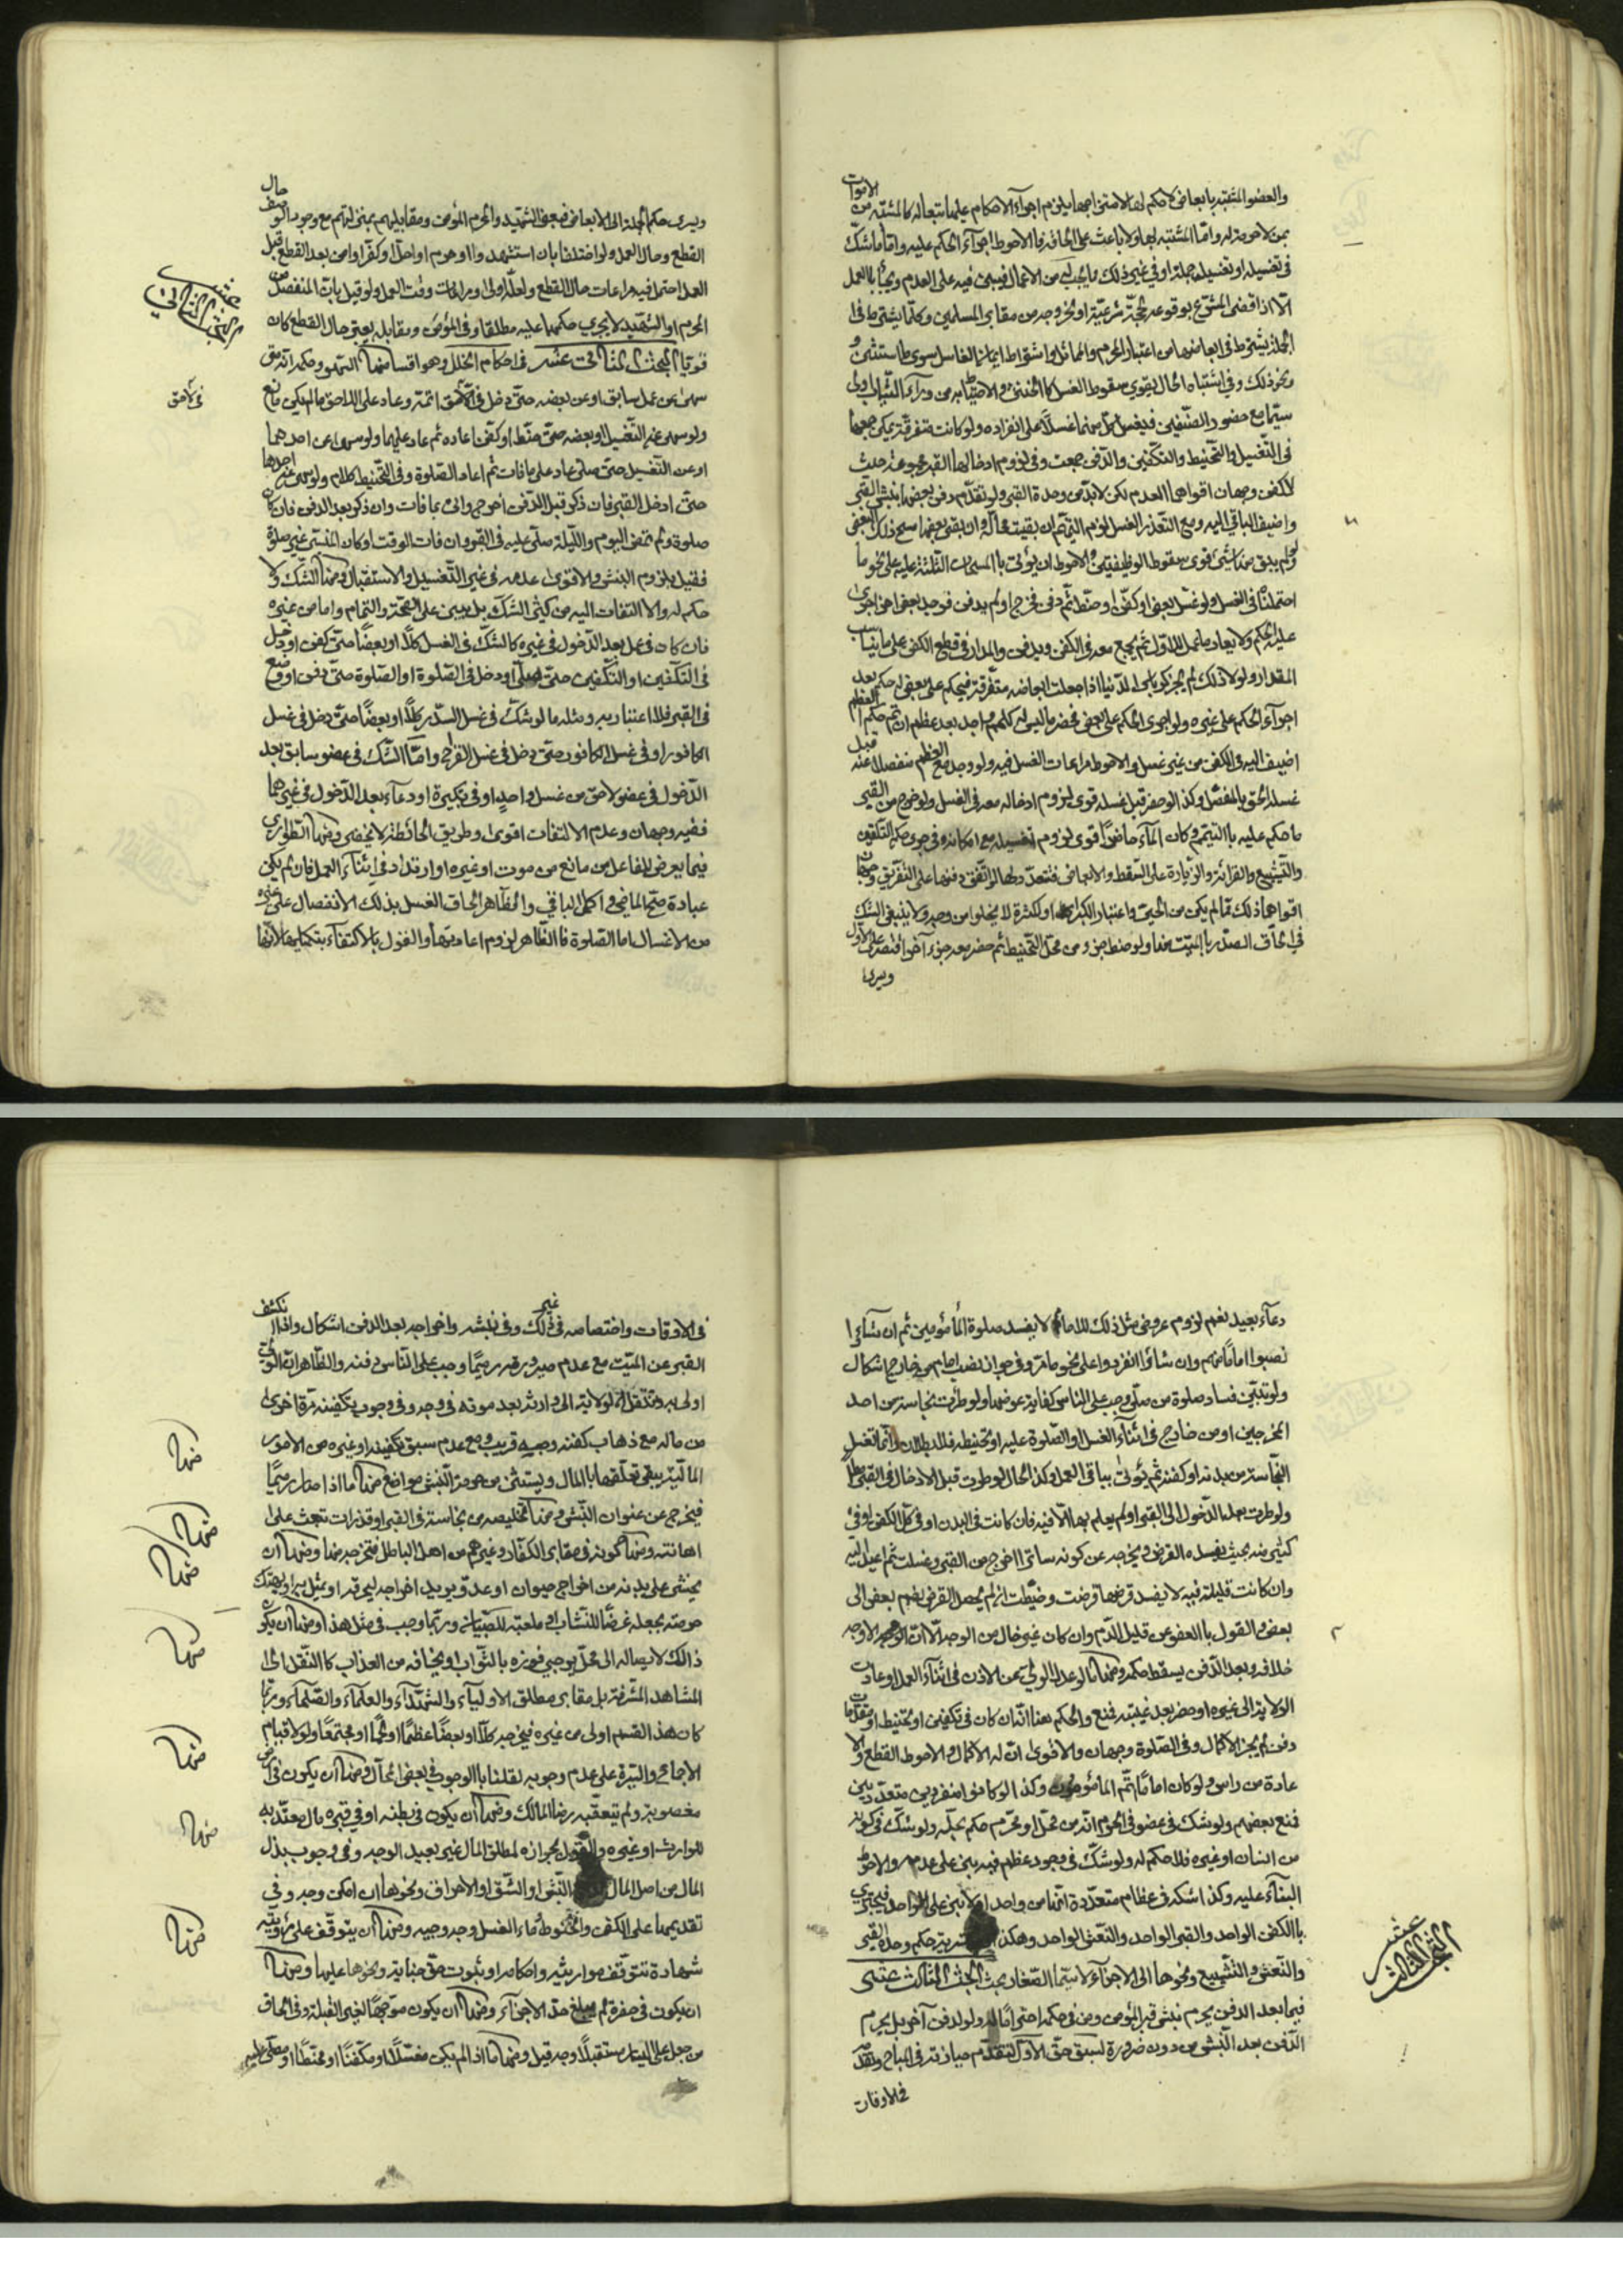 الاموات
والعضو المشتبه بابعاض لا حكم لها لا متزاجها يلزم اجرآء الاحكام عليها تبعا له كالمشتبه من
بمن لا حرمة له واما المشتبه بها ولا باعث على المخافة فالاحوط اجرآء الحكم عليه واما ما شكّ
في تغسيله او تغسيل جملة او في غير ذلك مما يجب له من الاعمال فيبنى فيه على العدم ويجآء بالعمل
الّا اذا قضى المشرّع بوقوعه بحجة شرعيّة او بخروجه من مقابر المسلمين وكلّما يشترط في
الجملة يشترط في ابعاضها من اعتبار المحرم والمماثل واشتراط ايمان الغاسل سوى ما استثنى و
نحو ذلك وفي اشتباه الحال يقوى سقوط الغسل كالخنثى والاحتياط به من ورآء الثياب اولى
سيّما مع حضور الصنفين فيغسل كلّ منهما غسلاً على انفراده ولو كانت متفرقة يمكن جمعها
في التغسيل والتحنيط والتكفين والدّفن جمعت وفي لزوم ادخالها القبر مجموعة حيث
لا كفن وجهان اقواهما العدم لكن لابدّ من وحدة القبر ولو تقدّم دفن بعضها نبش القبر
واضيف الباقي اليه ومع التعذر الغسل لزم التيمّم ان بقيت محاله وان بقى بعضها مسح ذلك البعض
ولو لم يبق منها شئ قوى سقوط الوظيفتين والاحوط ان يؤتى بالمسحات الثلثة عليه على نحو ما
احتملناه في الغسل ولو غسّل بعض او كفن او حنّط ثم دفن فخرج او لم يدفن فوجد بعض اخر اجرى
عليه الحكم ولا يعاد ما عمل للاوّل ثم يجمع معه في الكفن ويدفن والمدار في قطع الكفن على ما يناسب
المقدار ولولا ذلك لم يجز
اجرآء الحكم على غيره ولو اجرى الحكم على بعض فحضر ما ليس له حكم
اضيف اليه في الكفن من غير غسل والاحوط مراعات الغسل فيه ولو وجد مع العظم منفصلا عنه قبل
غسله الحق بالمتّصل وكذا لو حضر قبل غسله قوى لزوم ادخاله معه في الغسل ولو خرج من القبر
ما حكم عليه بالتيمم وكان المآء حاضراً قوى لزوم تغسيله مع امكانه وفي جرى حكم التلقين
والتشييع والقرائة والزيارة على السّقط والابعاض فتتعدّد لها لو اتّفق دفنها على التفريق وجهان
اقواهما ذلك ممّا لم يكن من الحىّ واعتبار الكبر او الكثرة لا يخلوا من وجه ولا ينبغى الشك
في الحاق الصّدر بالميّت منها ولو حنط جزء من محل التحنيط ثم حضر معه جزء آخر اقتصر على الاوّل
ويسرى
حال
ويسرى حكم الجملة الى الابعاض فبعض الشهيد والمحرم المؤمن ومقابليهم بمنزلتهم مع وجود الوصف
القطع وحال العمل ولو اختلفا بان استشهدوا او احرم او احلّ او كفر او امن بعد القطع قبل
العمل احتمل فيه مراعات حال القطع ولعلّه اولى او مراعات وقت العمل ولو قيل بان المنفصل من
المحرم او الشهيد لا يجرى حكمهما عليه مطلقا وفي المؤمن ومقابله يعتبر حال القطع كان
قويا المبحث الثاني عشر في احكام الخلل وهو اقسام منها السّهو وحكمه انّه متى
سهى عن عمل سابق او عن بعضه حتّى دخل في لاحق اتمّه وعاد على اللاحق ما لم يكن مانع
ولو سهى عن التغسيل او بعضه حتى حنّط او كفّن اعاده ثم عاد عليهما ولو سهى عن احدهما
او عن التغسيل حتى صلّى عاد على ما فات ثم اعاد الصّلوة وفي التحنيط كلام ولو سهى عن احدها
حتى ادخل القبر فان ذكر قبل الدفن اخرج واتى بما فات وان ذكر بعد الدفن فان كان
صلوة ولم تمض اليوم والليلة صلّى عليه في القبر وان فات الوقت او كان المنسىّ غير صلوة
فقيل بلزوم النبش والاقوى عدمه في غير التغسيل والاستقبال ومنها الشكّ ولا
حكم له ولا التفات اليه من كثير الشكّ بل يبنى على الصّحة والتمام واما من غيره
فان كان في عمل بعد الدّخول في غيره كالشكّ في الغسل كلّاً او بعضًا حتى كفن او دخل
في التكفين او التكفين حتى صلّى او دخل في الصّلوة او الصّلوة حتّى دفن او وضع
في القبر فلا اعتبار به ومثله ما لو شكّ في غسل السّدر كلّاً او بعضًا حتى دخل في غسل
الكافور او في غسل الكافور حتى دخل في غسل القراح وامّا الشكّ في عضو سابق بعد
الدّخول في عضو لاحق من غسل واحد او في تكبيرة او دعآء بعد الدّخول في غيرهما
ففيه وجهان وعدم الالتفات اقوى وطريق المحافظة لا يخفى ومنها الطوارى
فيما يعرض للفاعل من مانع من موت او غيره او ارتداد في اثنآء العمل فان لم يكن
عبادة صحّ الماضى واكمل الباقي والظاهر الحاق الغسل بذلك لانفصال على غيره
من الاغسال اما الصّلوة فالظاهر لزوم اعادتها والقول بالاكتفآء بتكبيرها لانها
المبحث الثاني عشر
في لاحق
دعآء بعيد نعم لزوم عروض مثل ذلك للامام لا يفسد صلوة المأمومين ثم ان شآءوا
نصبوا اماماً منهم وان شاؤا انفردوا على نحو ما مرّ وفي جواز نصب امام من خارج اشكال
ولو تبيّن فساد صلوة من صلّى وجب على الناس كفاية عوضها ولو طرئت نجاسة من احد
المخرجين او من خارج في اثنآء الغسل او الصّلوة عليه او تحنيطه فلا بطلان وانّما تغسل
النّجاسة من بدنه او كفنه ثم يؤتى بباقى العمل وكذا الحال لو طرئت قبل الادخال في القبر
ولو طرئت بعد الدّخول الى القبر او لم يعلم بها الّا فيه فان كانت في البدن او في كلّ الكفن او في
كثير منه بحيث يفسده القرض ويخرجه عن كونه ساترا اخرج من القبر وغسلت ثم اعيد اليه
وان كانت قليلة فيه لا يفسد قرضها قرضت وخيّطت ان لم يحصل القرض بضم بعض الى
بعض والقول بالعفو عن قليل الدّم وان كان غير خال من الوجه الّا انّ الاوجه
خلافه وبعد الدّفن يسقط حكمه ومنها ما لو عدل الولى عن الاذن في اثنآء العمل او عادت
الولاية الى غيره او حضر بعد غيبته فمنع والحكم هنا انّه ان كان في تكفين او تحنيط او مقدّمات
دفن لم يجز الاكمال وفي الصّلوة وجهان والاقوى انّ له الاكمال والاحوط القطع والا
عادة من راس ولو كان اماماً اتّم المأمومون وكذا لو كانوا منفردين متعدّدين
فمنع بعضهم ولو شكّ في عضو في المحرم انّه من محلّ او محرّم حكم بحلّه ولو شكّ في كونه
من انسان او غيره فلا حكم له ولو شكّ في وجود عظم فيه بنى على عدمه والاحوط
البنآء عليه وكذا لو شكّ في عظام متعدّدة انّها من واحد او لا بنى على الواحد فيجتزى
بالكفن الواحد والقبر الواحد والنّعش الواحد وهكذا حكم وحدة القبر
والنّعش والتّشييع ونحوها الى الاجزآء لا سيّما الصّغار بحث المبحث الثالث عشر
فيما بعد الدفن يحرم نبش قبر المؤمن ومن في حكمه احتراماً له ولو لدفن آخر بل يحرم
الدّفن بعد النّبش من دون ضرورة لسبق حقّ الاوّل لتقدّم حيازته في المباح وتقدّم
في الاوقات
المبحث الثالث عشر
في الاوقات واختصاصه في غير ذلك وفي نبشه واخراجه بعد الدفن اشكال واذا انكشف
القبر عن الميّت مع عدم صيرورته رميمًا وجب على النّاس دفنه والظّاهر انّ الولى
اولى به وتنتقل الولاية الى وارثه بعد موته في وجه وفي وجوب تكفينه مرّة اخرى
من ماله مع ذهاب كفنه وجه قريب ومع عدم سبق تكفينه او غيره من الامور
الماليّة يبقى تعلّقها بالمال ويستثنى من حرمة النّبش مواضع منها ما اذا صار رميمًا
فيخرج عن عنوان النّبش ومنها تخليصه من نجاسة في القبر او قذرات تبعث على
اهانته ومنها كونه في مقابر الكفّار وغيرهم من اهل الباطل فتخرجه منها ومنها ان
يخشى على بدنه من اخراج حيوان او عدوّ يريد اخراجه ليحرقه او يمثل به او يهتك
حرمته بجعله غرضًا للنّشاب او ملعبة للصّبيان وربّما وجب في مثل هذا ومنها ان يكون
ذالك لايصاله الى محلّ يوجب فوزه بالثّواب او نجاته من العذاب كالنّقل الى
المشاهد المشرّفة بل مقابر مطلق الاوليآء والشّهدآء والعلمآء والصّلحآء وربّما
كان هذا القسم اولى من غيره فيخرجه كلّاً او بعضاً عظماً او لحماً او مجتمعًا ولولا قيام
الاجماع والسّيرة على عدم وجوبه لقلنا بالوجوب في بعض المحالّ ومنها ان يكون في ارض
مغصوبة ولم يتعقّبه رضا المالك ومنها ان يكون في بطنه او في قبره مال معتدّ به
للوارث او غيره والقول بجوازه لمطلق المال غير بعيد الوجه وفي وجوب بذل
المال من اصل المال النّبش او الشّق او الاحراق ونحوها ان امكن وجه وفي
تقديمها على الكفن والحنوط وماء الغسل وجه وجيه ومنها ان يتوقّف على رؤيته
شهادة تتوقّف مواريثه واحكامه او ثبوت حقّ جناية ونحوها عليها ومنها
ان يكون في حفرة لم يبلغ حدّ الاجزآء ومنها ان يكون موجّهًا لغير القبلة وفي الحاق
من جعل على اليسار مستقبلاً وجه قيل ومنها ما اذا لم يكن مغسّلاً او مكفّنًا او محنّطًا او مصلّى عليه
منها
منها
منها
منها
منها
منها
منها